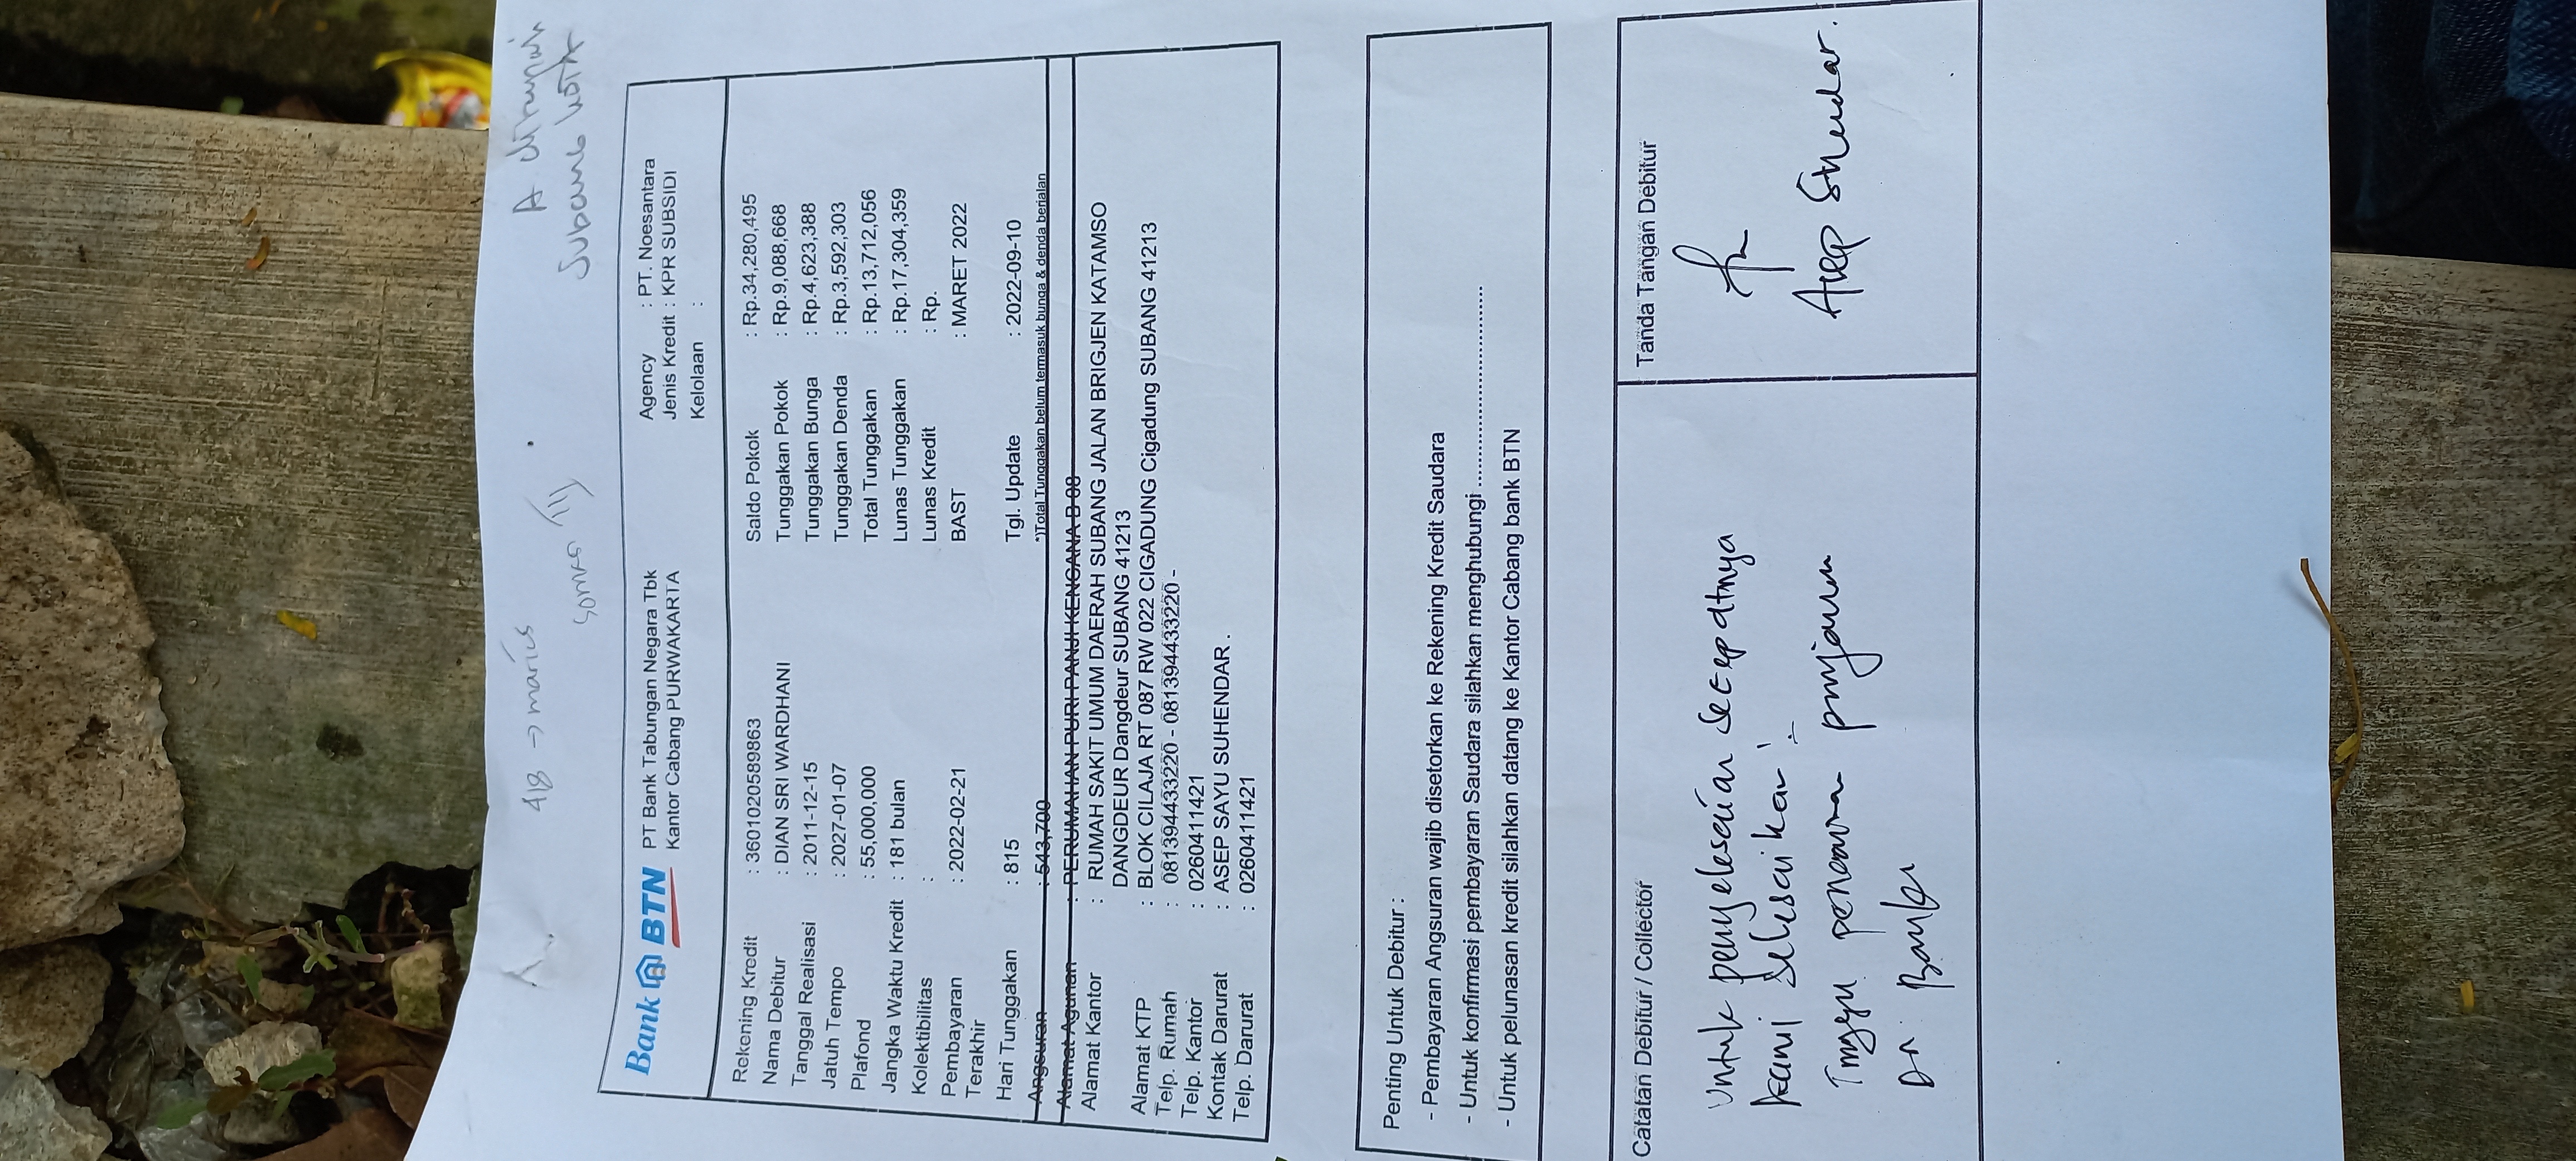 A ditunjuk
Subang kota
4/8 → marius
Bank BTN
PT Bank Tabungan Negara Tbk
Kantor Cabang PURWAKARTA
Agency : PT. Noesantara
Jenis Kredit : KPR SUBSIDI
Kelolaan :
Rekening Kredit : 3601020589863
Nama Debitur : DIAN SRI WARDHANI
Tanggal Realisasi : 2011-12-15
Jatuh Tempo : 2027-01-07
Plafond : 55,000,000
Jangka Waktu Kredit : 181 bulan
Kolektibilitas :
Pembayaran Terakhir : 2022-02-21
Hari Tunggakan : 815
Angsuran : 543,700
Saldo Pokok : Rp.34,280,495
Tunggakan Pokok : Rp.9,088,668
Tunggakan Bunga : Rp.4,623,388
Tunggakan Denda : Rp.3,592,303
Total Tunggakan : Rp.13,712,056
Lunas Tunggakan : Rp.17,304,359
Lunas Kredit : Rp.
BAST : MARET 2022
Tgl. Update : 2022-09-10
*)Total Tunggakan belum termasuk bunga & denda berjalan
Alamat Agunan : PERUMAHAN PURI PANJI KENCANA B-08
Alamat Kantor : RUMAH SAKIT UMUM DAERAH SUBANG JALAN BRIGJEN KATAMSO
DANGDEUR Dangdeur SUBANG 41213
Alamat KTP : BLOK CILAJA RT 087 RW 022 CIGADUNG Cigadung SUBANG 41213
Telp. Rumah : 081394433220 - 081394433220 -
Telp. Kantor : 0260411421
Kontak Darurat : ASEP SAYU SUHENDAR .
Telp. Darurat : 0260411421
Penting Untuk Debitur :
- Pembayaran Angsuran wajib disetorkan ke Rekening Kredit Saudara
- Untuk konfirmasi pembayaran Saudara silahkan menghubungi ..............................
- Untuk pelunasan kredit silahkan datang ke Kantor Cabang bank BTN
Catatan Debitur / Collector
Untuk penyelesaian secepatnya
kami selesaikan
Tunggu penawaran pinjaman
Dr. Bank
Tanda Tangan Debitur
Asep Suhendar.